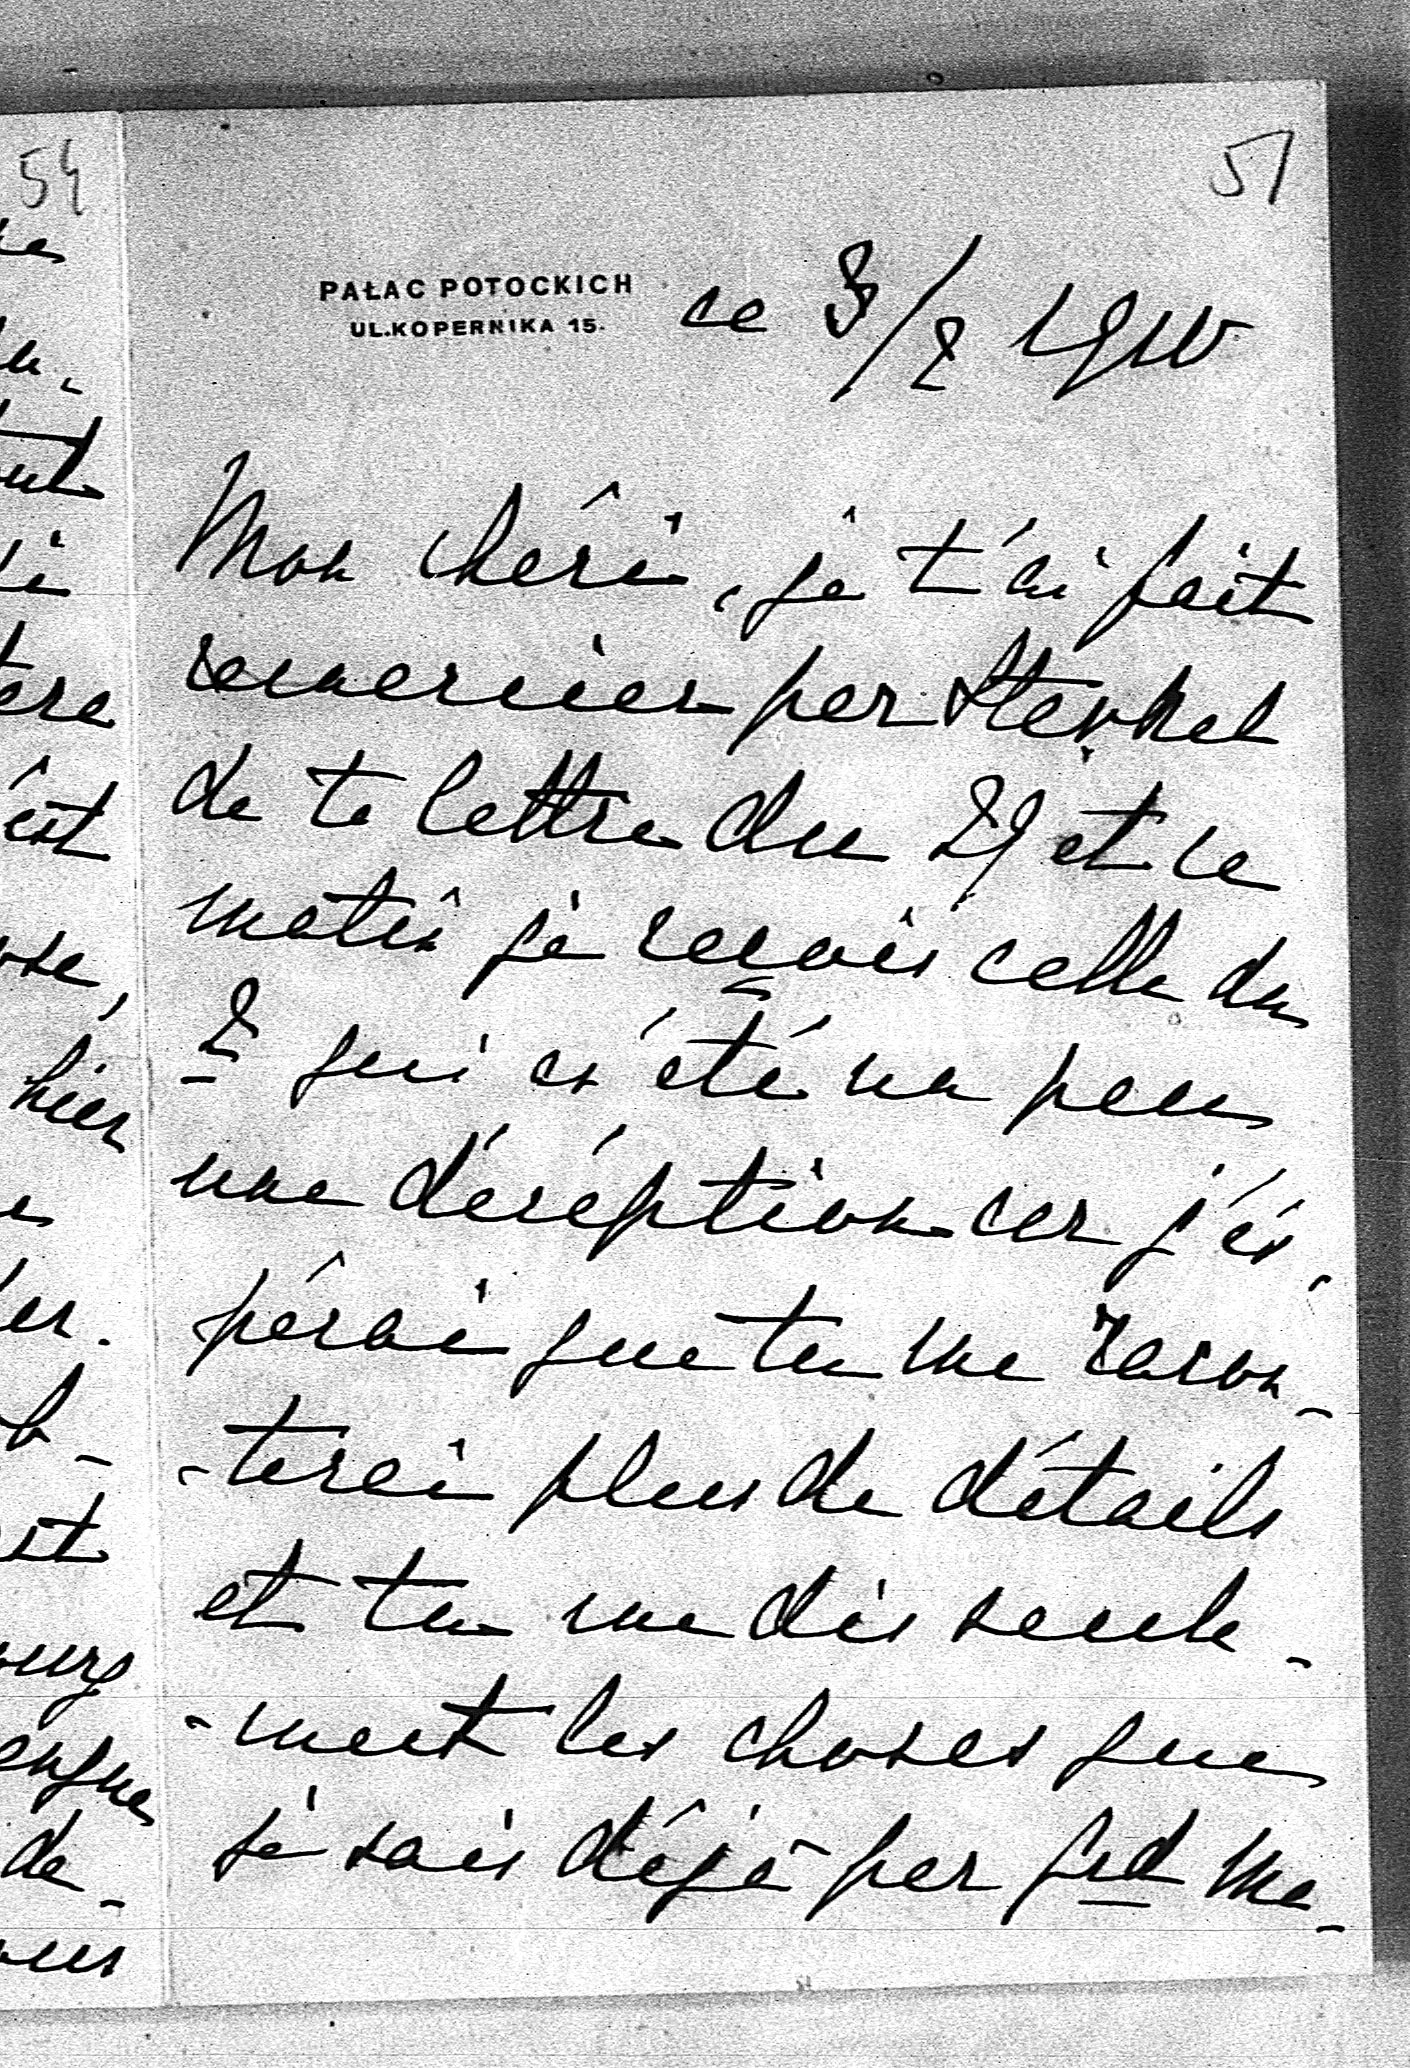 54
51
PAŁAC POTOCKICH
UL. KOPERNIKA 15.
ce 8/2 1910
Mon chéri, je t'ai fait
remercier par
de ta lettre du 29 et ce
matin je reçois celle du
2 qui a été un peu
une décéption car j'es-
pérai que tu me racon-
-terai plus de détails
et tu me dis seule-
-ment les choses que
je sais déjà par grd Ma-
hier
est
de-